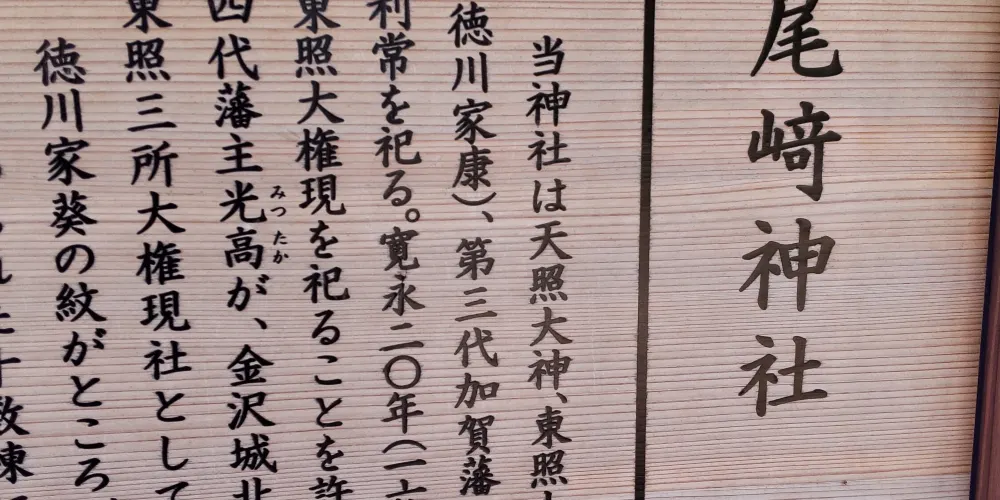 尾﨑神社
当神社は天照大神、東照
徳川家康）、第三代加賀藩
利常を祀る。寛永二〇年（一六
東照大権現を祀ることを許
四代藩主光高が、金沢城北
みつたか
東照三所大権現社として
徳川家葵の紋がところ
十数棟